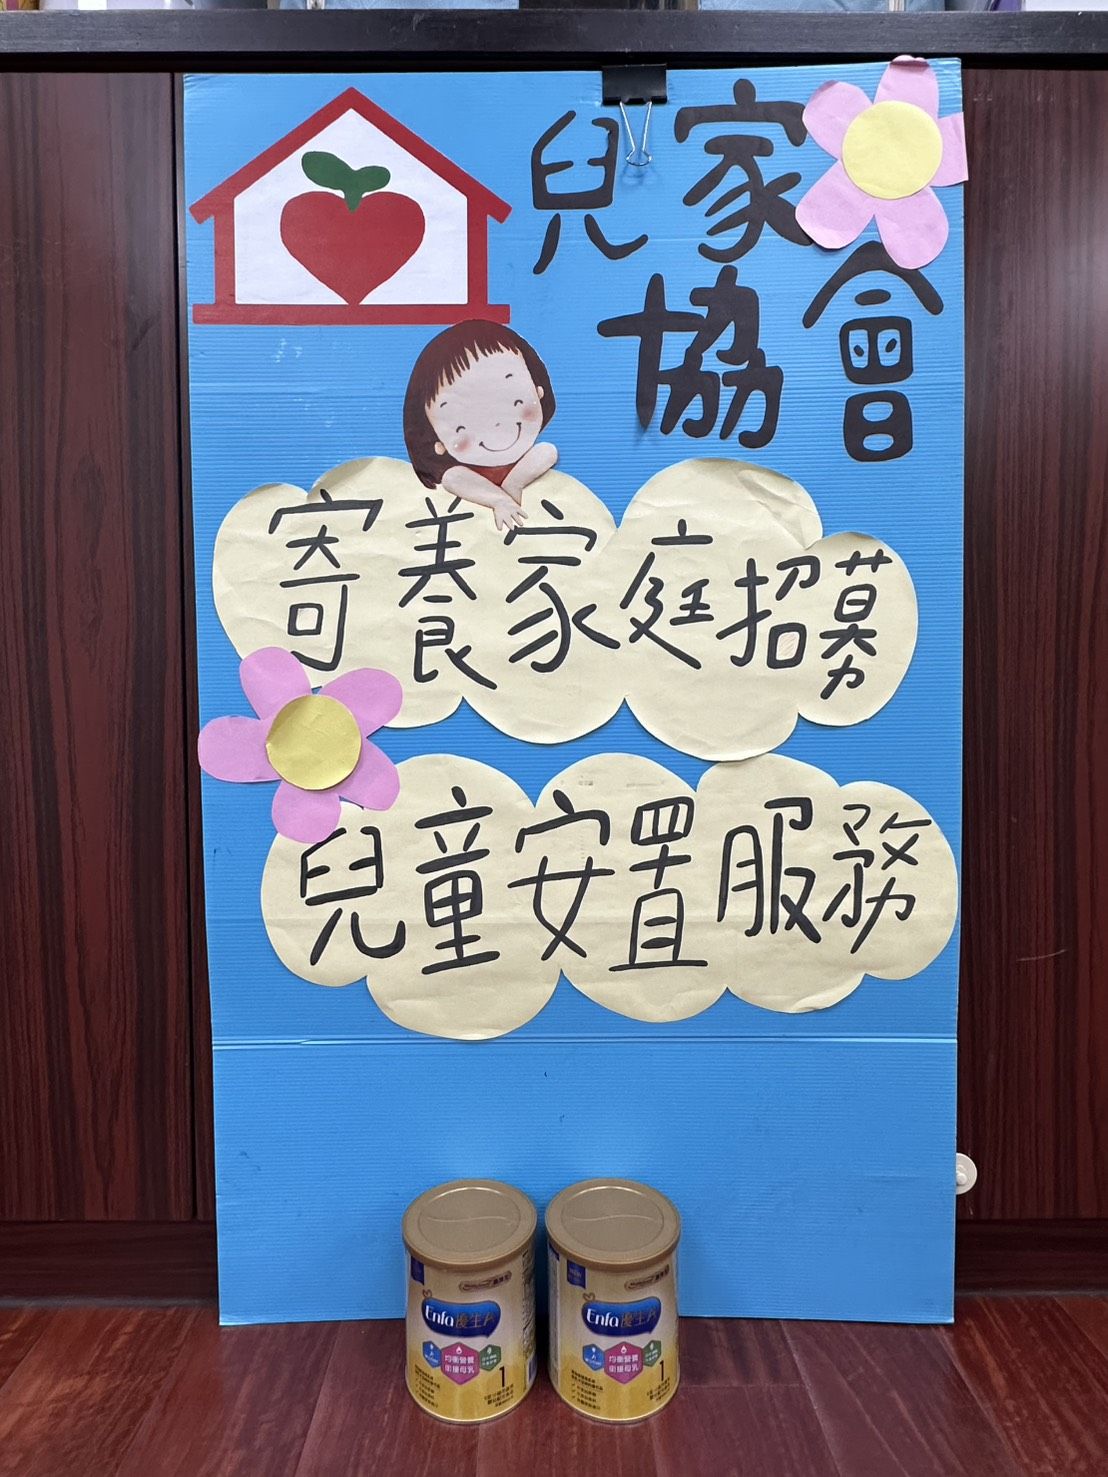 兒家
協會
寄養家庭招募
兒童安置服務
Enfa優生A+
均衡營養
銜接母乳
1
Enfa優生A+
均衡營養
銜接母乳
1